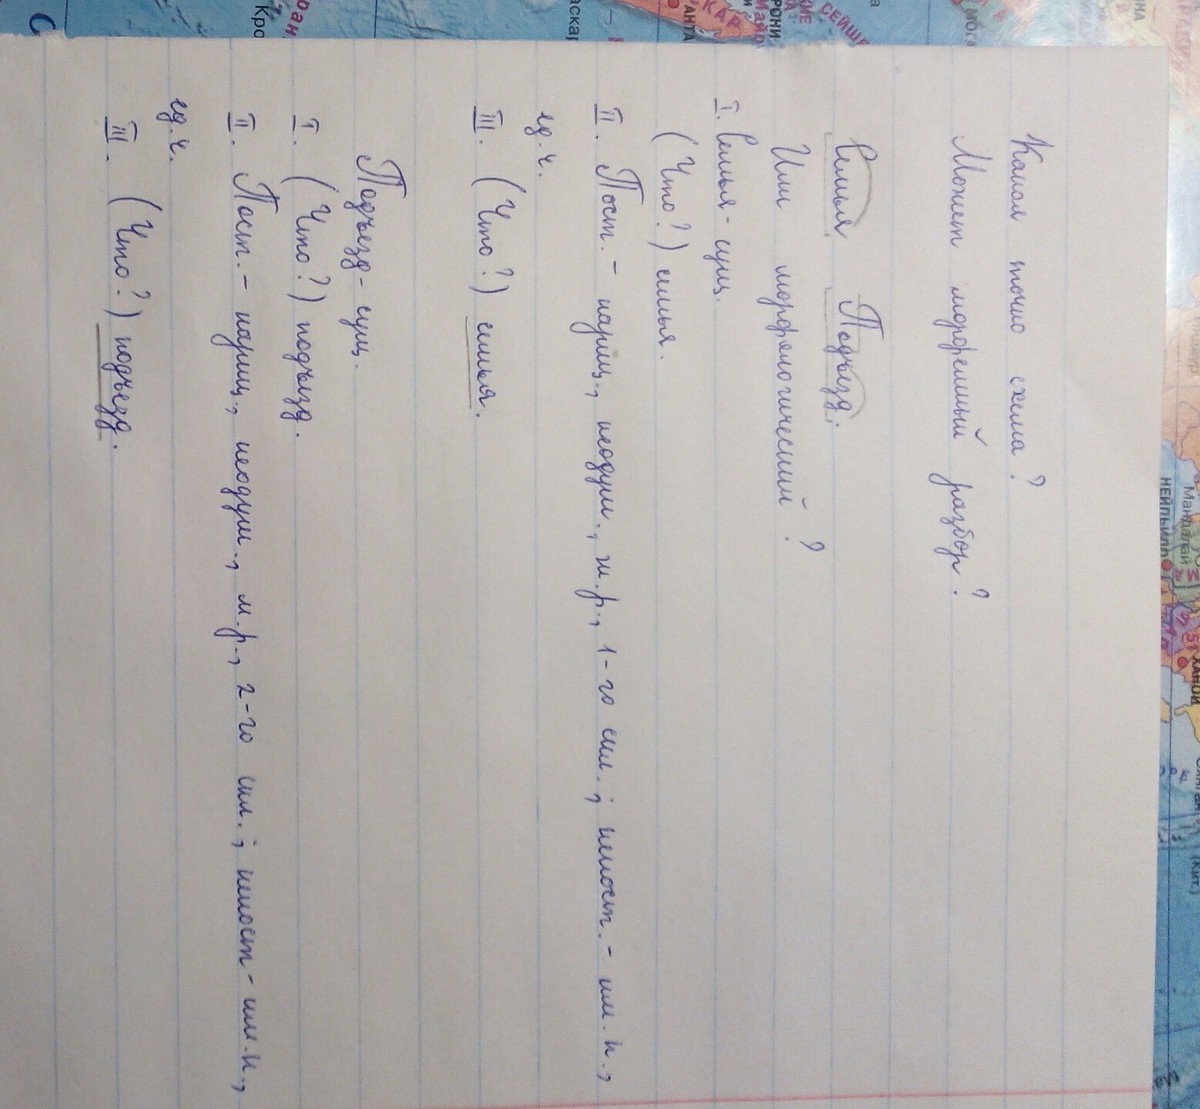 Какая точно схема?
Может морфемный разбор?
Семья, Подъезд.
Или морфологический?
I. Семья - сущ.
(Что?) семья.
II. Пост. - нариц., неодуш., ж.р., 1-го скл.; непост. - им.п.,
ед.ч.
III. (Что?) семья.
Подъезд - сущ.
I. (Что?) подъезд.
II. Пост. - нариц., неодуш., м.р., 2-го скл.; непост - им.п.,
ед.ч.
III. (Что?) подъезд.
НЕЙПЬИДО
Мандалай
ХАНОЙ
(Кит.)
СЕЙШ
КАР
Кро